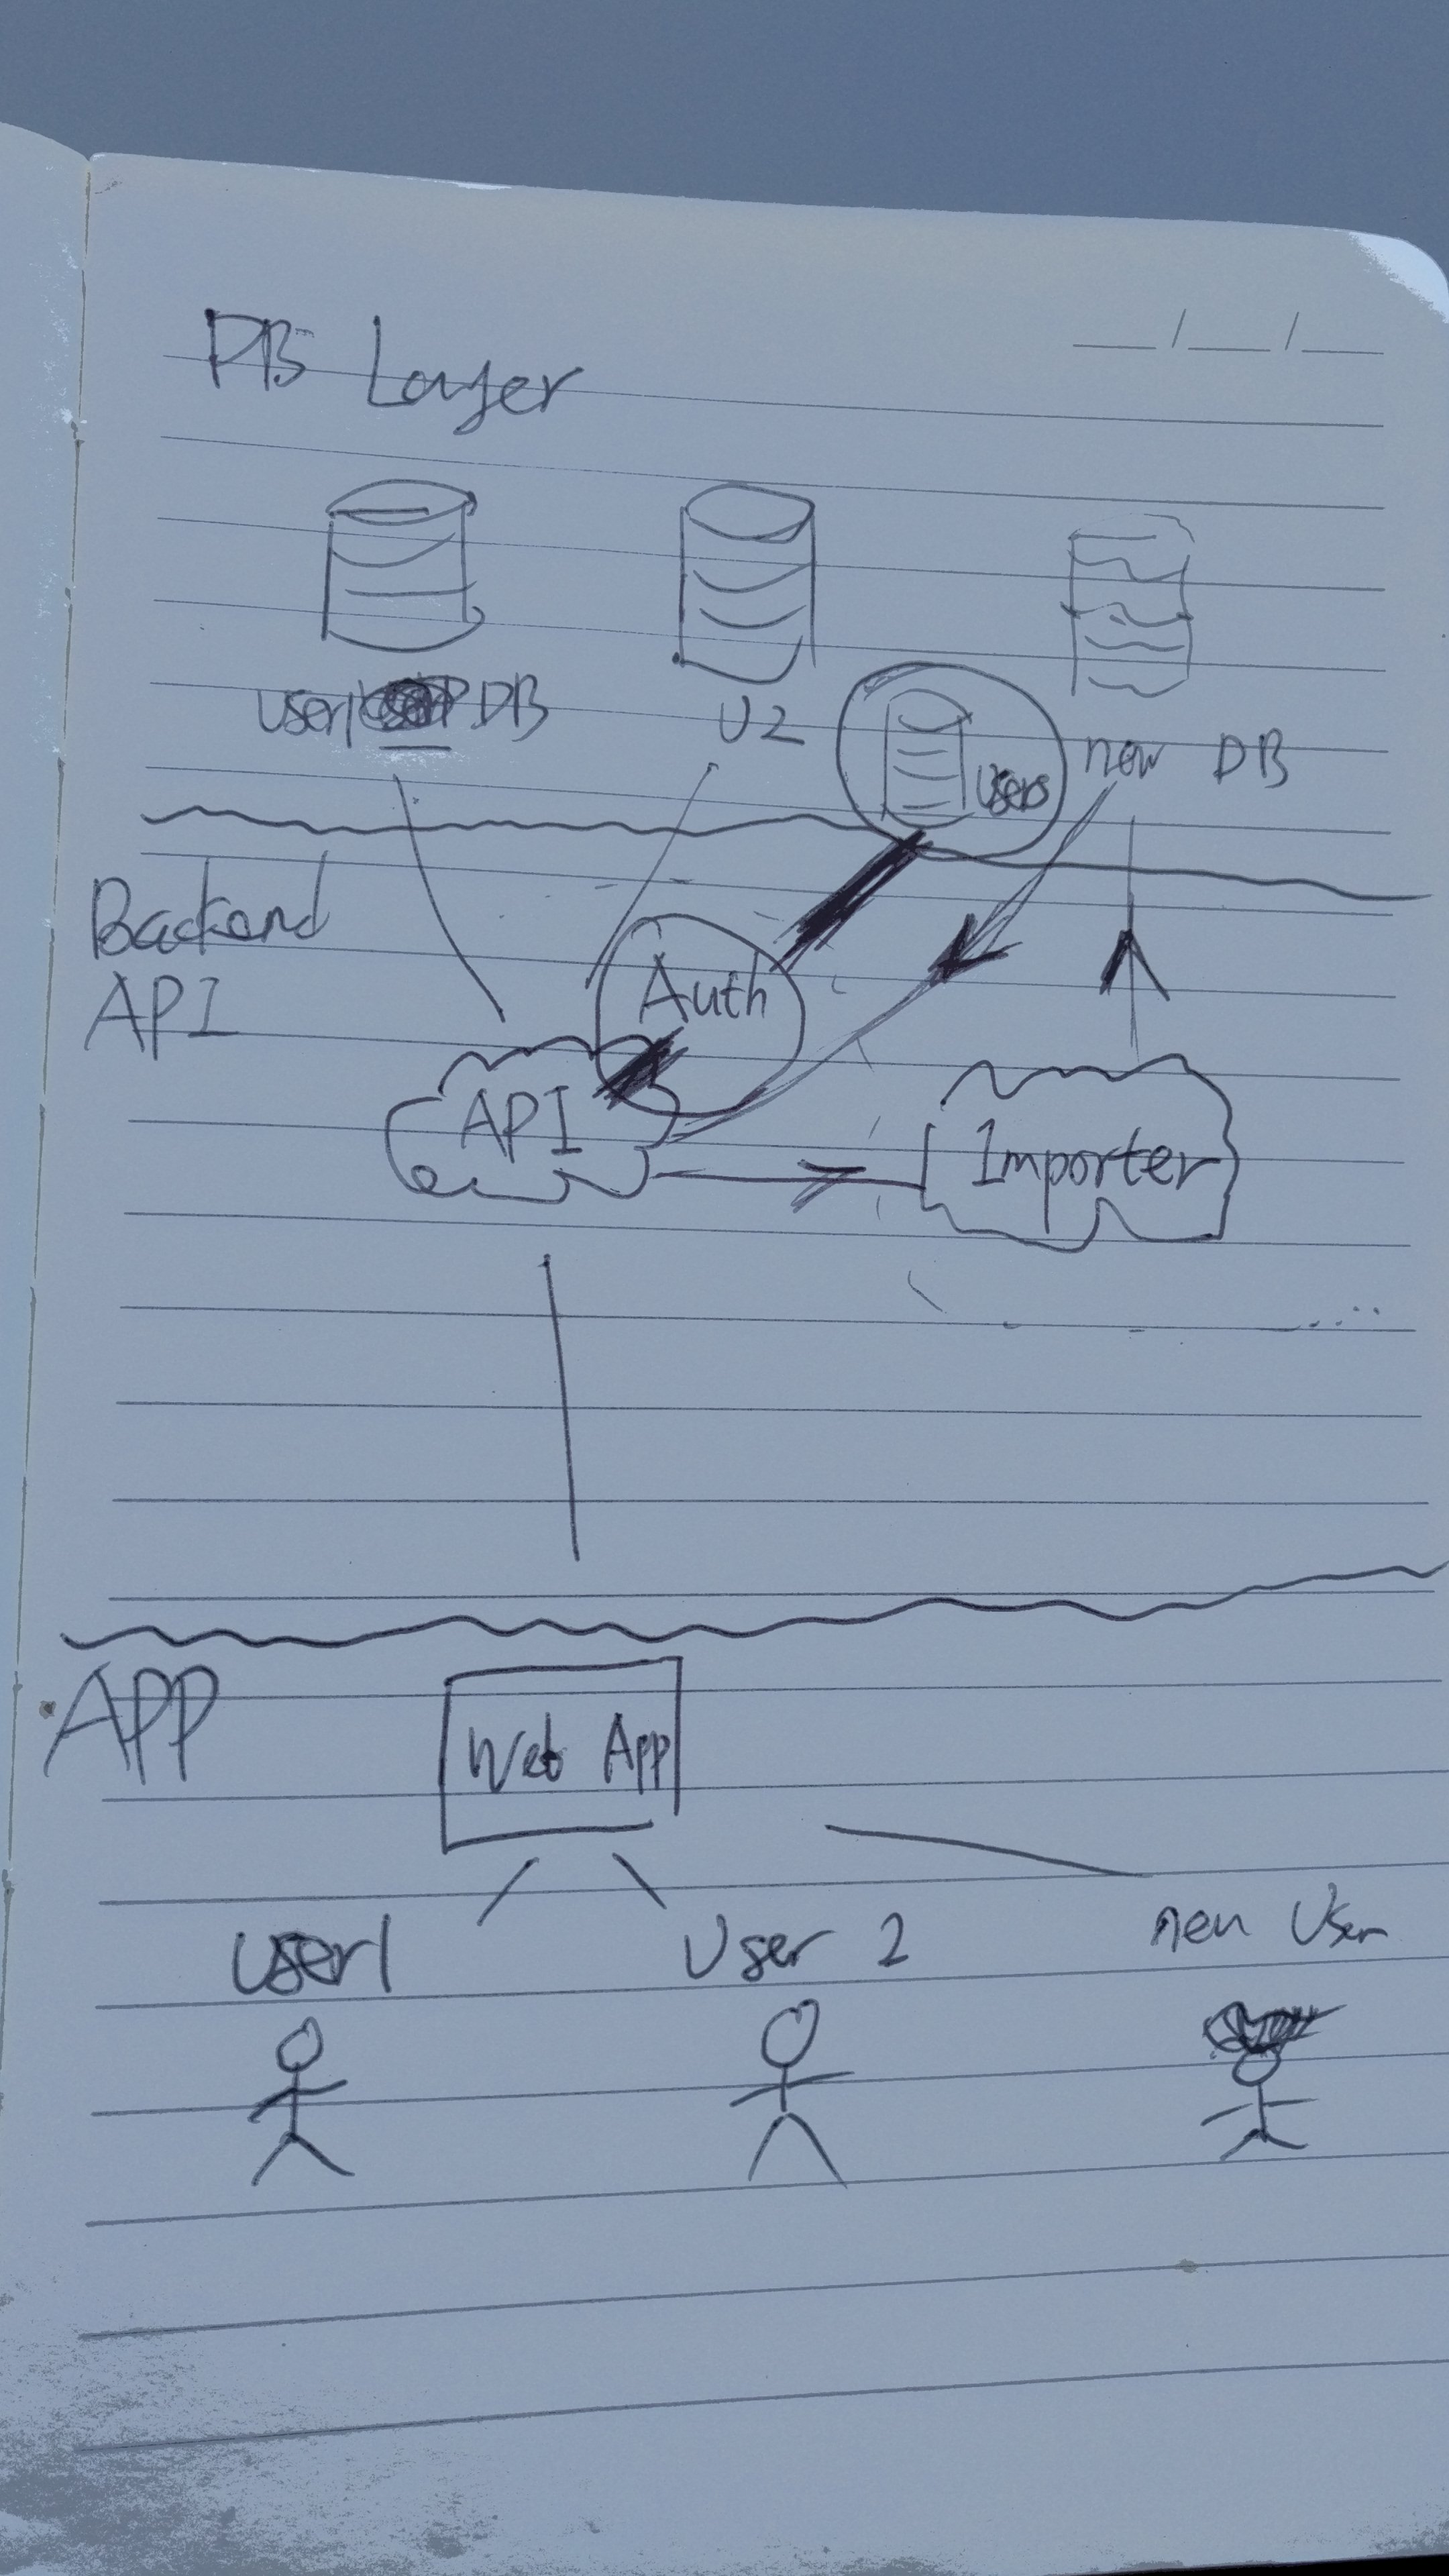 DB Layer
User1 DB
U2
Users
new DB
Backend
API
Auth
API
Importer
APP
Web App
User1
User 2
new User